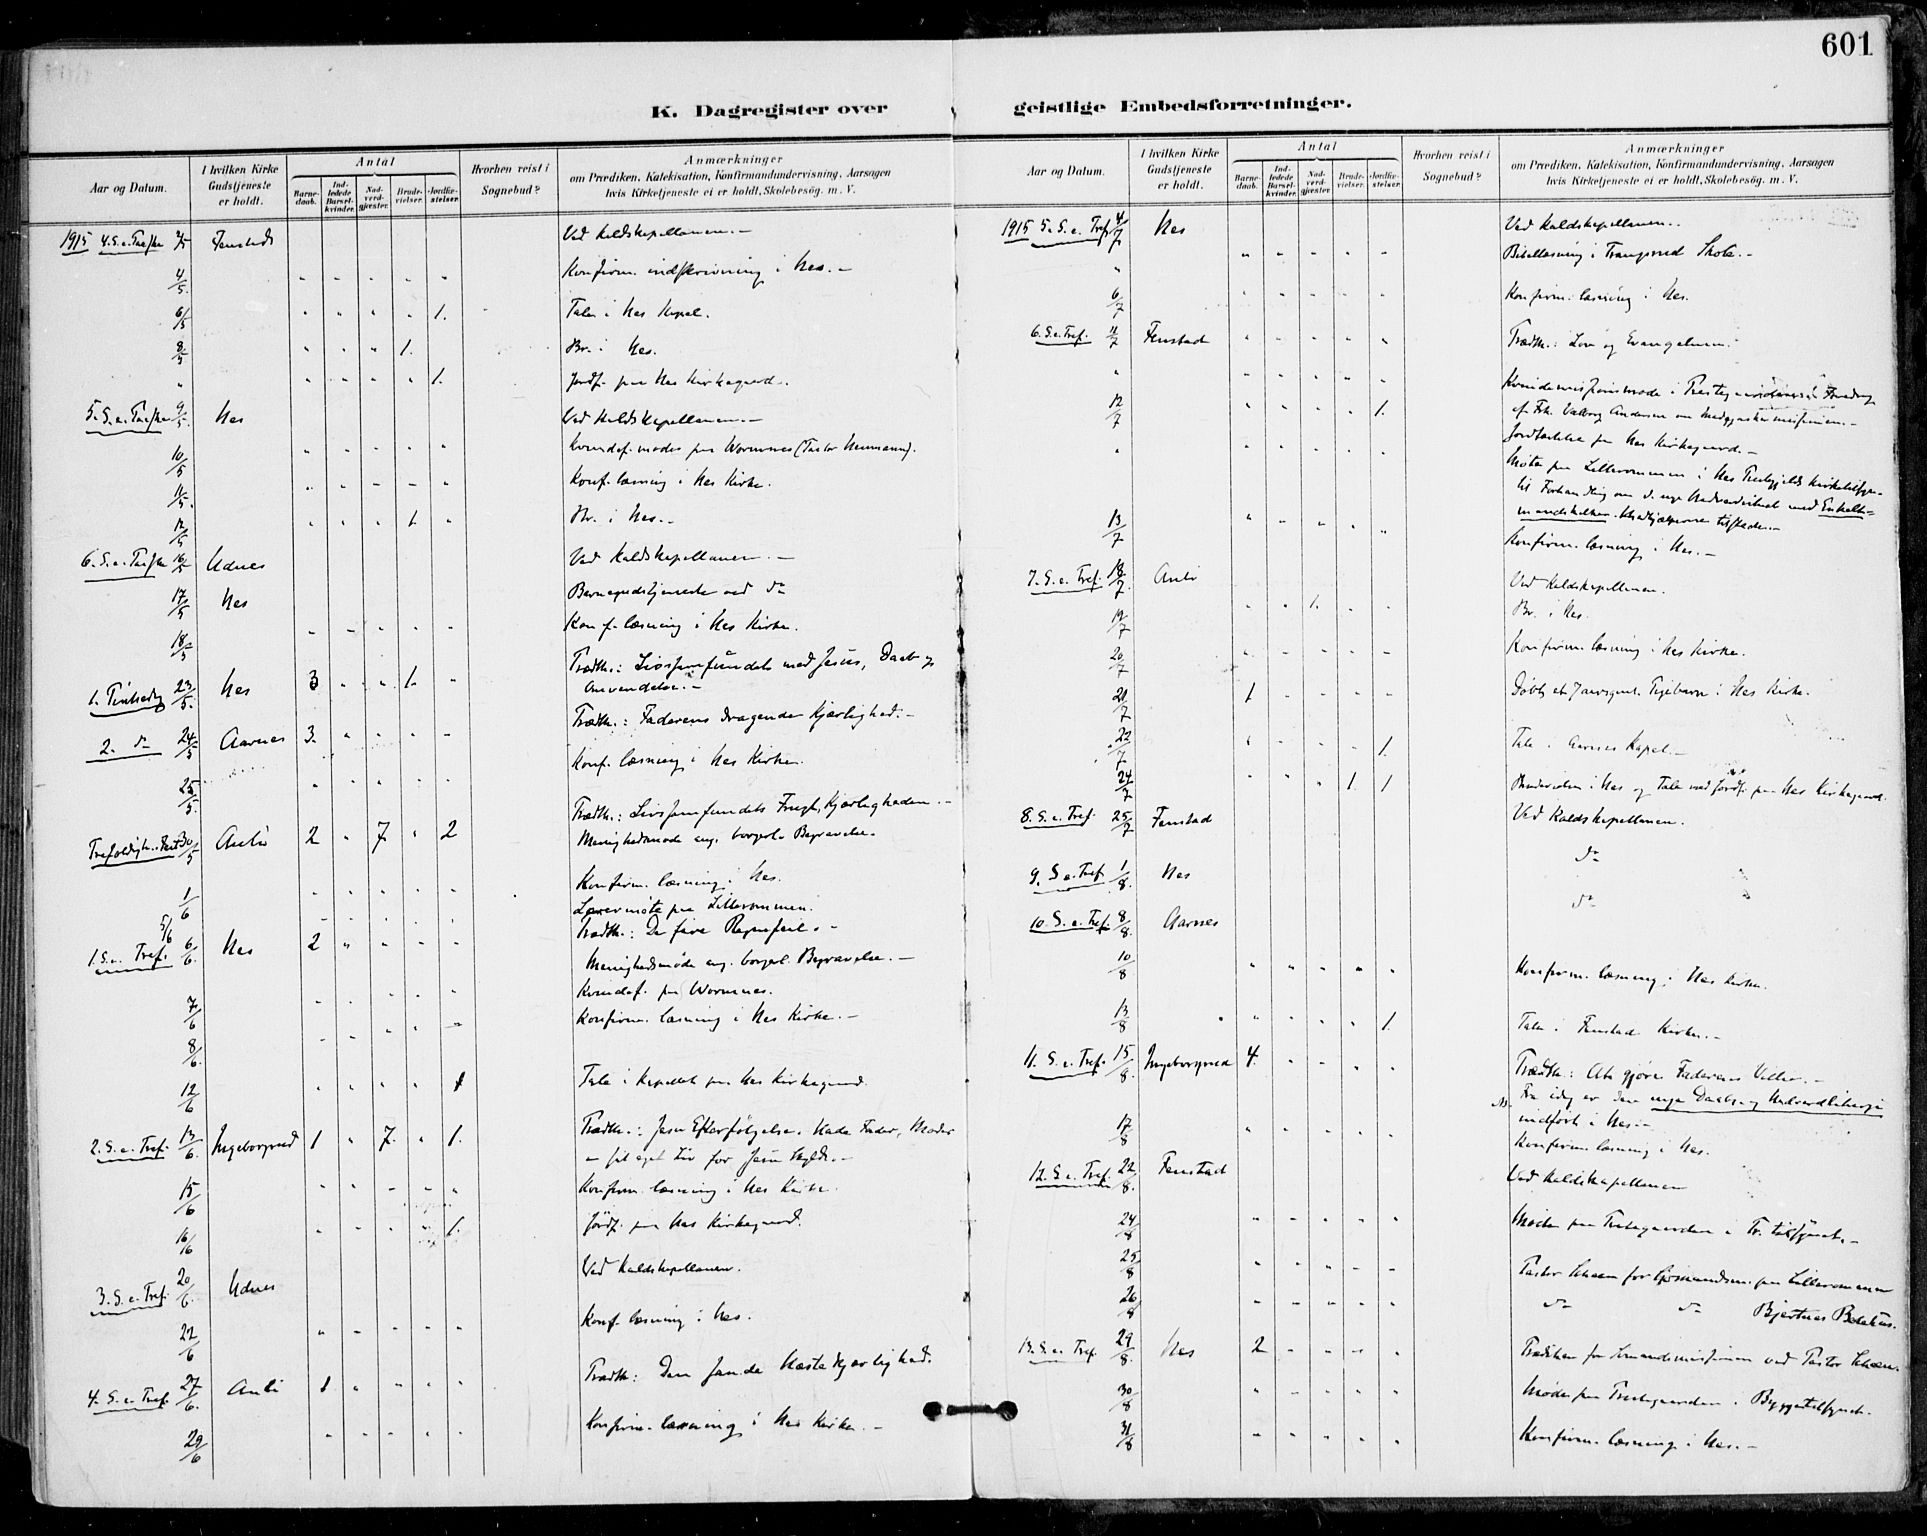 601
K. Dagregister over
geistlige Embedsforretninger.
Aar og Datum.
I hvilken Kirke Gudstjeneste er holdt.
Antal
Barnedaab.
Indledede Barselkvinder.
Nadverdgjæster.
Brudevielser.
Jordfæstelser.
Hvorhen reist i Sognebud?
Anmærkninger
om Prædiken, Katekisation, Konfirmandundervisning, Aarsagen
hvis Kirketjeneste ei er holdt, Skolebesøg. m. V.
1915 4. S. e. Paaske 2/5 Fenstad Ved Kaldskapellanen.-
4/5. Konfirm. indskrivning i Nes.-
6/5 1. Tale i Nes Kapel.
8/5 1. Br. i Nes.
" 1. Jordf. paa Nes Kirkegaard.
5. S. e. Paaske 9/5. Nes Ved Kaldskapellanen.-
10/5 Kvindef. møde paa Wormnes (Pastor Neumann).
11/5. Konf. læsning i Nes Kirke.
12/5 1. Br. i Nes.-
6. S. e. Paaske 16/5 Udnes Ved Kaldskapellanen.-
17/5 Nes Barnegudstjeneste ved do
18/5 Konf. læsning i Nes Kirke.
1. Pintsedag 23/5. Nes 3 1. Prædk.: Livssamfundet med Jesus, Daab og
Anvendelse.-
2. do 24/5 Aarnes 3. Prædk.: Faderens dragende Kjærlighed.-
25/5 Konf. læsning i Nes Kirke.
Trefoldigh. Fest 30/5 Auli 2 7. 2 Prædk.: Livssamfundets Frugt, Kjærligheden.-
Menighedsmøde ang. borgerl. Begravelse.
1/6 Konfirm. læsning i Nes.
5/6 Lærermøte paa Lillerommen.
1. S. e. Tref. 6/6. Nes 2 Prædk.: De fire
Menighedsmøde ang. borgerl. Begravelse.-
7/6 Kvindef. paa Wormnes.
8/6. Konfirm. læsning i Nes Kirke.-
12/6 1 Tale i Kapellet paa Nes Kirkegaard.
2. S. e. Tref. 13/6. Ingeborgrud 1 7. 1. Prædk.: Jesu Efterfølgelse. Hade Fader, Moder
- sit eget Liv for Jesu Skyld.-
15/6 Konfirm. læsning i Nes Kirke.
16/6 1. Jordf. paa Nes Kirkegaard.
3. S. e. Tref. 20/6. Udnes Ved Kaldskapellanen.
22/6 Konf. læsning i Nes.
4. S. e. Tref. 27/6. Auli 1 Prædk.: Den sande Næstekjærlighed.
29/6 Konfirm. læsning i Nes Kirke.-
Aar og Datum.
I hvilken Kirke Gudstjeneste er holdt.
Antal
Barnedaab.
Indledede Barselkvinder.
Nadverdgjæster.
Brudevielser.
Jordfæstelser.
Hvorhen reist i Sognebud?
Anmærkninger
om Prædiken, Katekisation, Konfirmandundervisning, Aarsagen
hvis Kirketjeneste ei er holdt, Skolebesøg. m. V.
1915 5. S. e. Tref. 4/7 Nes Ved Kaldskapellanen.
" Bibellæsning i Skole.-
6/7 Konfirm. læsning i Nes.
6. S. e. Tref. 11/7 Fenstad Prædk.: Lov og Evangelium.
" Kvindemissionsmøde i Foredrag
af Frk. Valborg Andersen om
12/7 1. Jordfæstelse paa Nes Kirkegaard.-
" Møte paa Lillerommen i Nes
til Forhandling om d. nye Nadverdritual med Enkelt-
13/7 Konfirm. læsning i Nes.-
7. S. e. Tref. 18/7 Auli Ved Kaldskapellanen.
19/7 1. Br. i Nes.
20/7 Konfirm. læsning i Nes Kirke.
21/7 1 Døbt et Pigebarn i Nes Kirke.
22/7 1. Tale i Aarnes Kapel.-
24/7 1 1 Brudevielse i Nes og Tale ved Jordf. paa Nes Kirkegaard.
8. S. e. Tref. 25/7 Fenstad Ved Kaldskapellanen.
9. S. e. Tref. 1/8. Nes do
10. S. e. Tref. 8/8. Aarnes do
10/8 Konfirm. læsning i Nes Kirke.
13/8 1. Tale i Fenstad Kirke.-
11. S. e. Tref. 15/8. Ingeborgrud 4. Prædk.: At gjøre Faderens Vilje.-
Fra idag er den nye Daabs- og Nadverdliturgi
indført i Nes.-
17/8 Konfirm. læsning i Nes.
12. S. e. Tref. 22/8. Fenstad Ved Kaldskapellanen
24/8 Møde paa Prestegaarden i
25/8 Pastor for paa Lillerommen
26/8 do do Bjertnes Bedehus.
13. S. e. Tref. 29/8. Nes 2 Prædiken for ved Pastor
30/8 Møde paa Prestegaarden i Byggetilsynet.
31/8 Konfirm. læsning i Nes.-